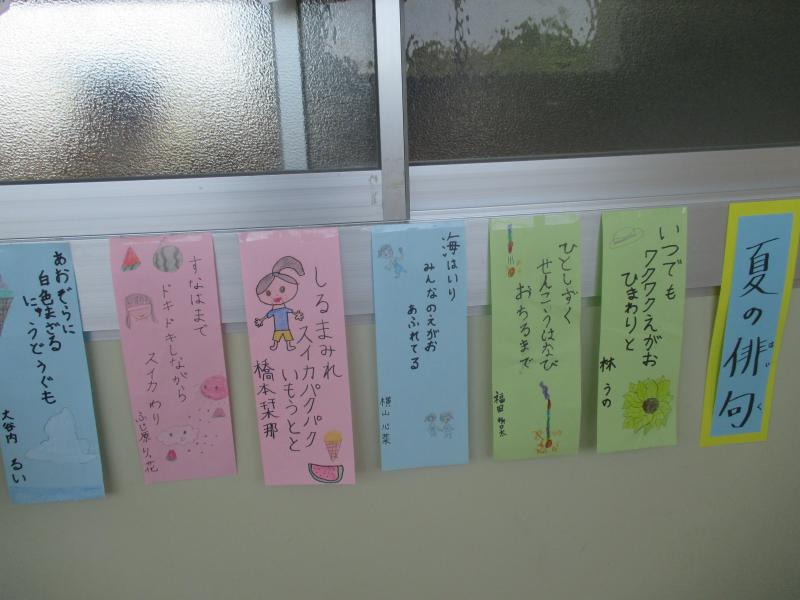 夏の俳句
はいく
いつでも
ワクワクえがお
ひまわりと
林 うの
ひとしずく
せんこうはなび
おちるまで
福田
海はいり
みんなのえがお
あふれてる
横山 心菜
しるまみれ
スイカパクパク
いもうとと
橋本栞那
すなはまで
ドキドキしながら
スイカわり
ふじ原り花
あおぞらに
白色まざる
にゅうどうぐも
大谷内 るい